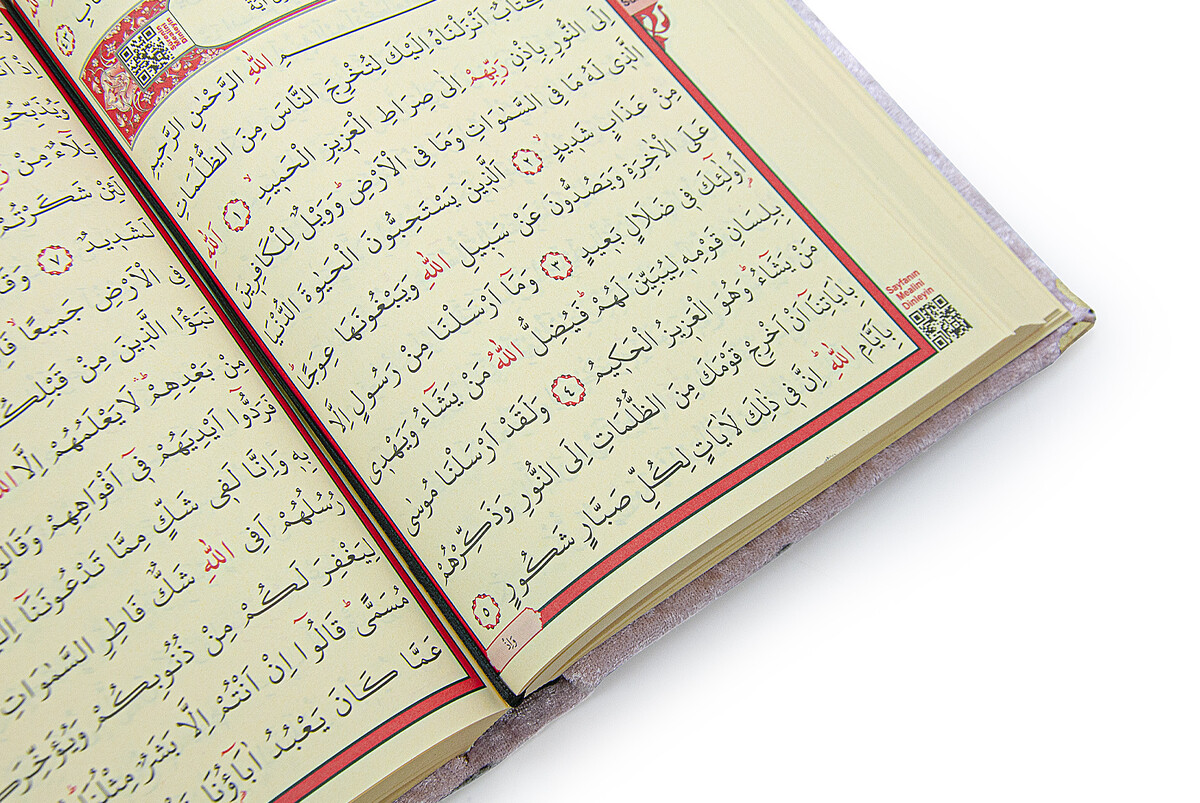 اللّٰهِ الرَّحْمٰنِ الرَّحٖيمِ
كِتَابٌ اَنْزَلْنَاهُ اِلَيْكَ لِتُخْرِجَ النَّاسَ مِنَ الظُّلُمَاتِ
اِلَى النُّورِ بِاِذْنِ رَبِّهِمْ اِلٰى صِرَاطِ الْعَزٖيزِ الْحَمٖيدِۙ ١ اَللّٰهِ
الَّذٖى لَهُ مَا فِى السَّمٰوَاتِ وَمَا فِى الْاَرْضِۜ وَوَيْلٌ لِلْكَافِرٖينَ
مِنْ عَذَابٍ شَدٖيدٍۙ ٢ اَلَّذٖينَ يَسْتَحِبُّونَ الْحَيٰوةَ الدُّنْيَا
عَلَى الْاٰخِرَةِ وَيَصُدُّونَ عَنْ سَبٖيلِ اللّٰهِ وَيَبْغُونَهَا عِوَجًاۜ
اُو۬لٰٓئِكَ فٖى ضَلَالٍ بَعٖيدٍ ٣ وَمَٓا اَرْسَلْنَا مِنْ رَسُولٍ اِلَّا
بِلِسَانِ قَوْمِهٖ لِيُبَيِّنَ لَهُمْۜ فَيُضِلُّ اللّٰهُ مَنْ يَشَٓاءُ وَيَهْدٖى
مَنْ يَشَٓاءُۜ وَهُوَ الْعَزٖيزُ الْحَكٖيمُ ٤ وَلَقَدْ اَرْسَلْنَا مُوسٰى
بِاٰيَاتِنَٓا اَنْ اَخْرِجْ قَوْمَكَ مِنَ الظُّلُمَاتِ اِلَى النُّورِ وَذَكِّرْهُمْ
بِاَيَّامِ اللّٰهِۜ اِنَّ فٖى ذٰلِكَ لَاٰيَاتٍ لِكُلِّ صَبَّارٍ شَكُورٍ ٥
وَاِذْ
Sayfanın
Mealini
Dinleyin
Sûrenin
Mealini
Dinleyin
بَلَٓاءٌ مِنْ
لَئِنْ شَكَرْتُمْ
لَشَدٖيدٌ ٧
فِى الْاَرْضِ جَمٖيعًاۙ
نَبَؤُا الَّذٖينَ مِنْ
مِنْ بَعْدِهِمْۜ لَا يَعْلَمُهُمْ اِلَّا
فَرَدُّٓوا اَيْدِيَهُمْ فٖٓى اَفْوَاهِهِمْ
بِهٖ وَاِنَّا لَفٖى شَكٍّ مِمَّا تَدْعُونَنَٓا
رُسُلُهُمْ اَفِى اللّٰهِ شَكٌّ فَاطِرِ السَّمٰوَاتِ
لِيَغْفِرَ لَكُمْ مِنْ ذُنُوبِكُمْ
مُسَمًّىۜ قَالُٓوا اِنْ اَنْتُمْ اِلَّا بَشَرٌ مِثْلُنَاۜ
عَمَّا كَانَ يَعْبُدُ اٰبَٓاؤُنَا